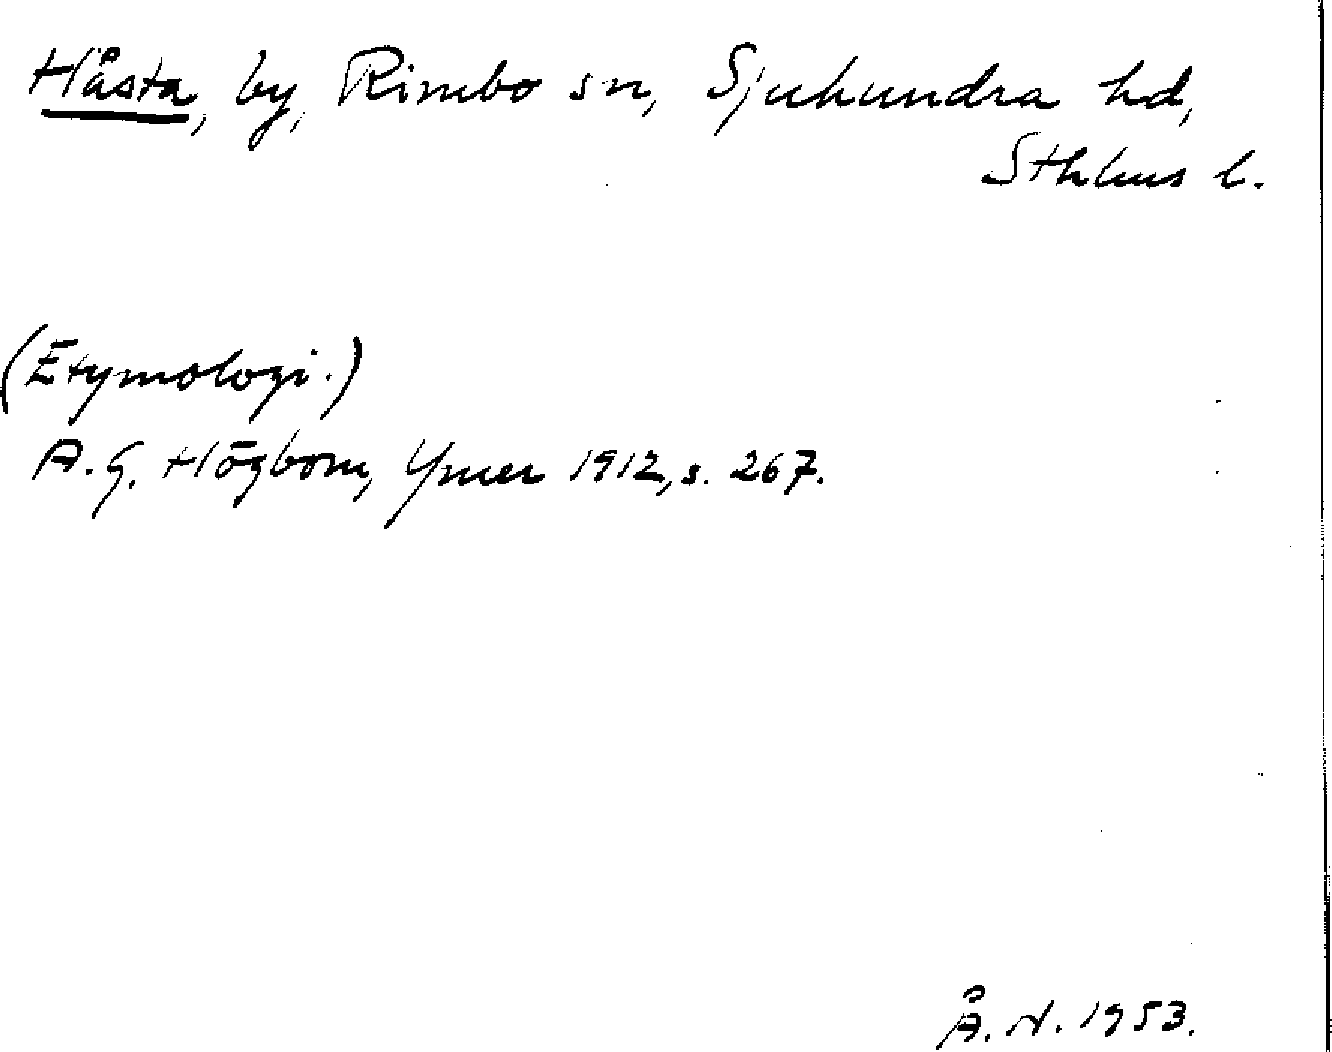 Håsta, by, Rimbo sn, Sjuhundra hd,
Sthlms l.
(Etymologi.)
A.G. Högbom, Ymer 1912, s. 267.
Å. N. 1953.